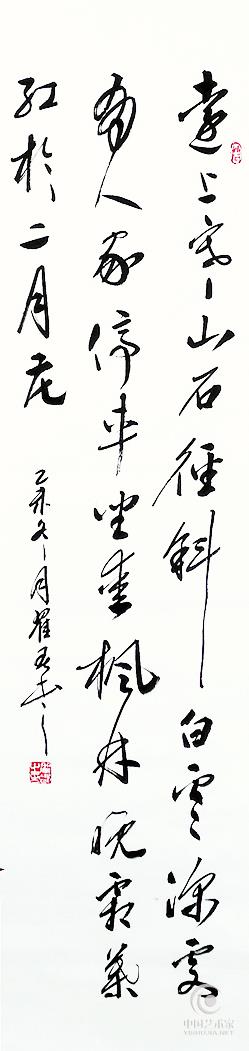 遠上寒山石徑斜白雲深處
有人家停車坐愛楓林晚霜葉
紅於二月花
未冬月
中国艺术家
YISHUJIA.NET